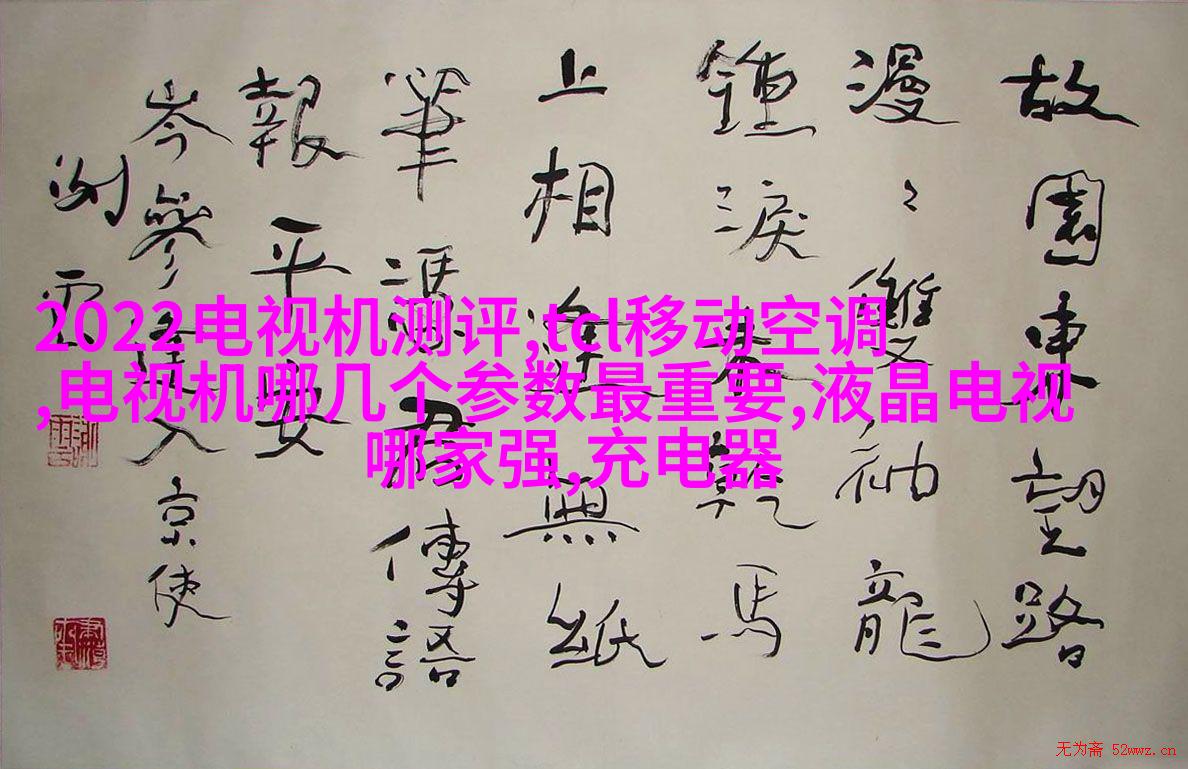 2022电视机测评,tcl移动空调
,电视机哪几个参数最重要,液晶电视
哪家强,充电器
故園東望路
漫〻雙袖龍
鍾淚乾馬
上相逢無紙
筆馮君傳語
報平安
岑參逢入京使
无为斋 52wwz.cn